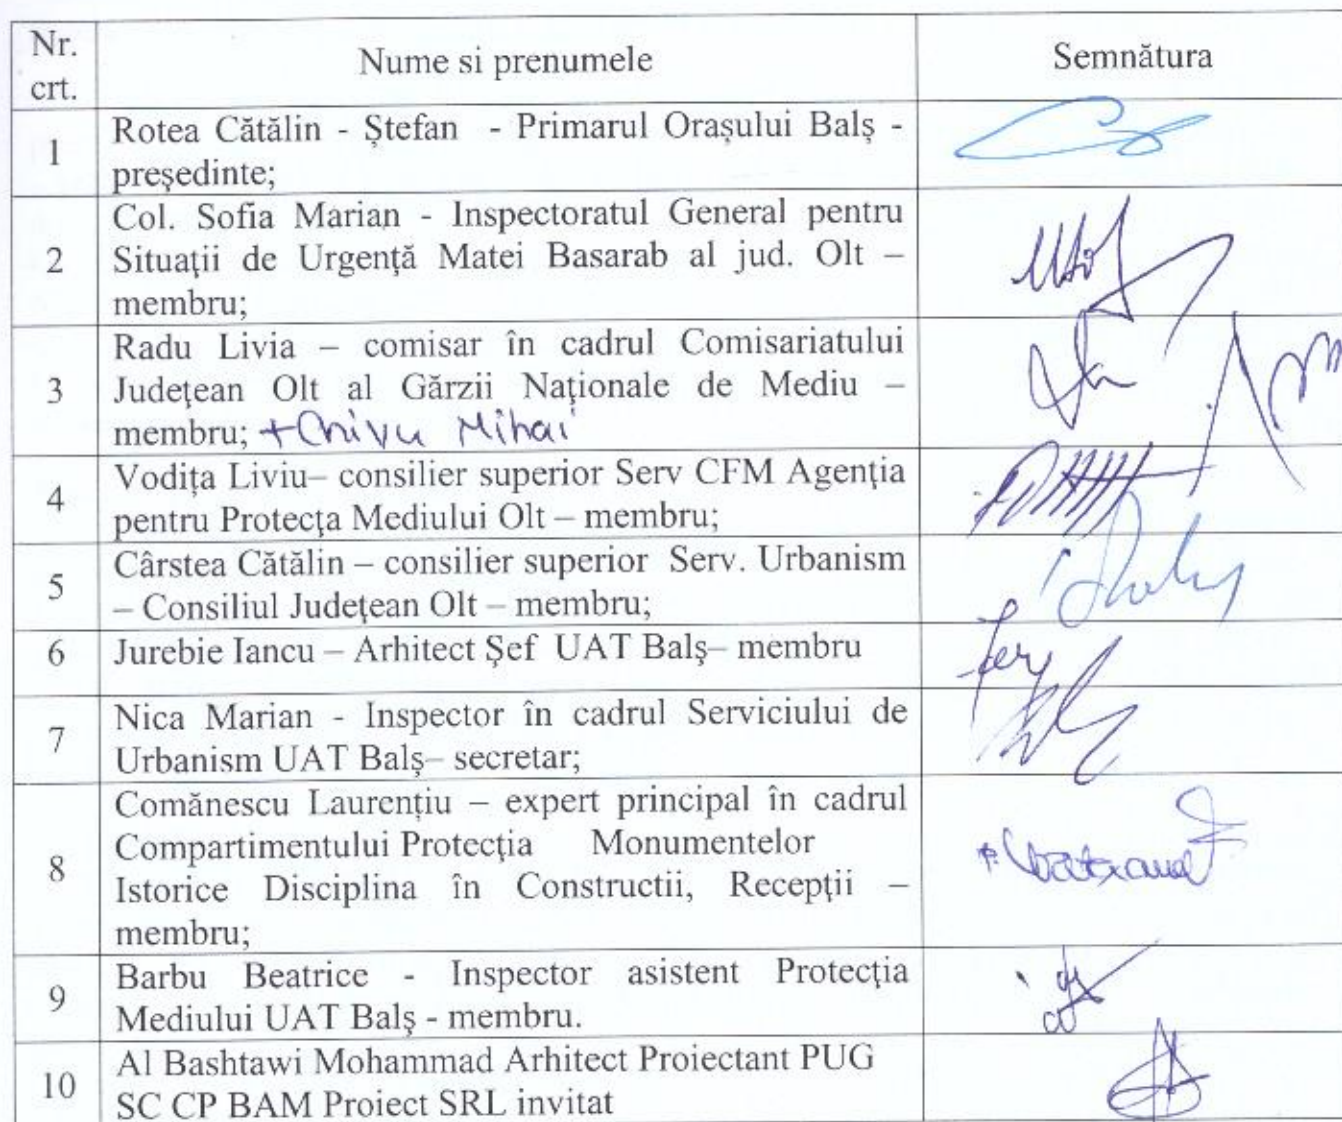 Nr. crt. Nume si prenumele Semnătura
1 Rotea Cătălin - Ștefan - Primarul Orașului Balș -
președinte;
2 Col. Sofia Marian - Inspectoratul General pentru
Situații de Urgență Matei Basarab al jud. Olt –
membru;
3 Radu Livia – comisar în cadrul Comisariatului
Județean Olt al Gărzii Naționale de Mediu –
membru; + Chivu Mihai
4 Vodița Liviu– consilier superior Serv CFM Agenția
pentru Protecța Mediului Olt – membru;
5 Cârstea Cătălin – consilier superior Serv. Urbanism
– Consiliul Județean Olt – membru;
6 Jurebie Iancu – Arhitect Șef UAT Balș– membru
7 Nica Marian - Inspector în cadrul Serviciului de
Urbanism UAT Balș– secretar;
8 Comănescu Laurențiu – expert principal în cadrul
Compartimentului Protecția Monumentelor
Istorice Disciplina în Constructii, Recepții –
membru;
9 Barbu Beatrice - Inspector asistent Protecția
Mediului UAT Balș - membru.
10 Al Bashtawi Mohammad Arhitect Proiectant PUG
SC CP BAM Proiect SRL invitat